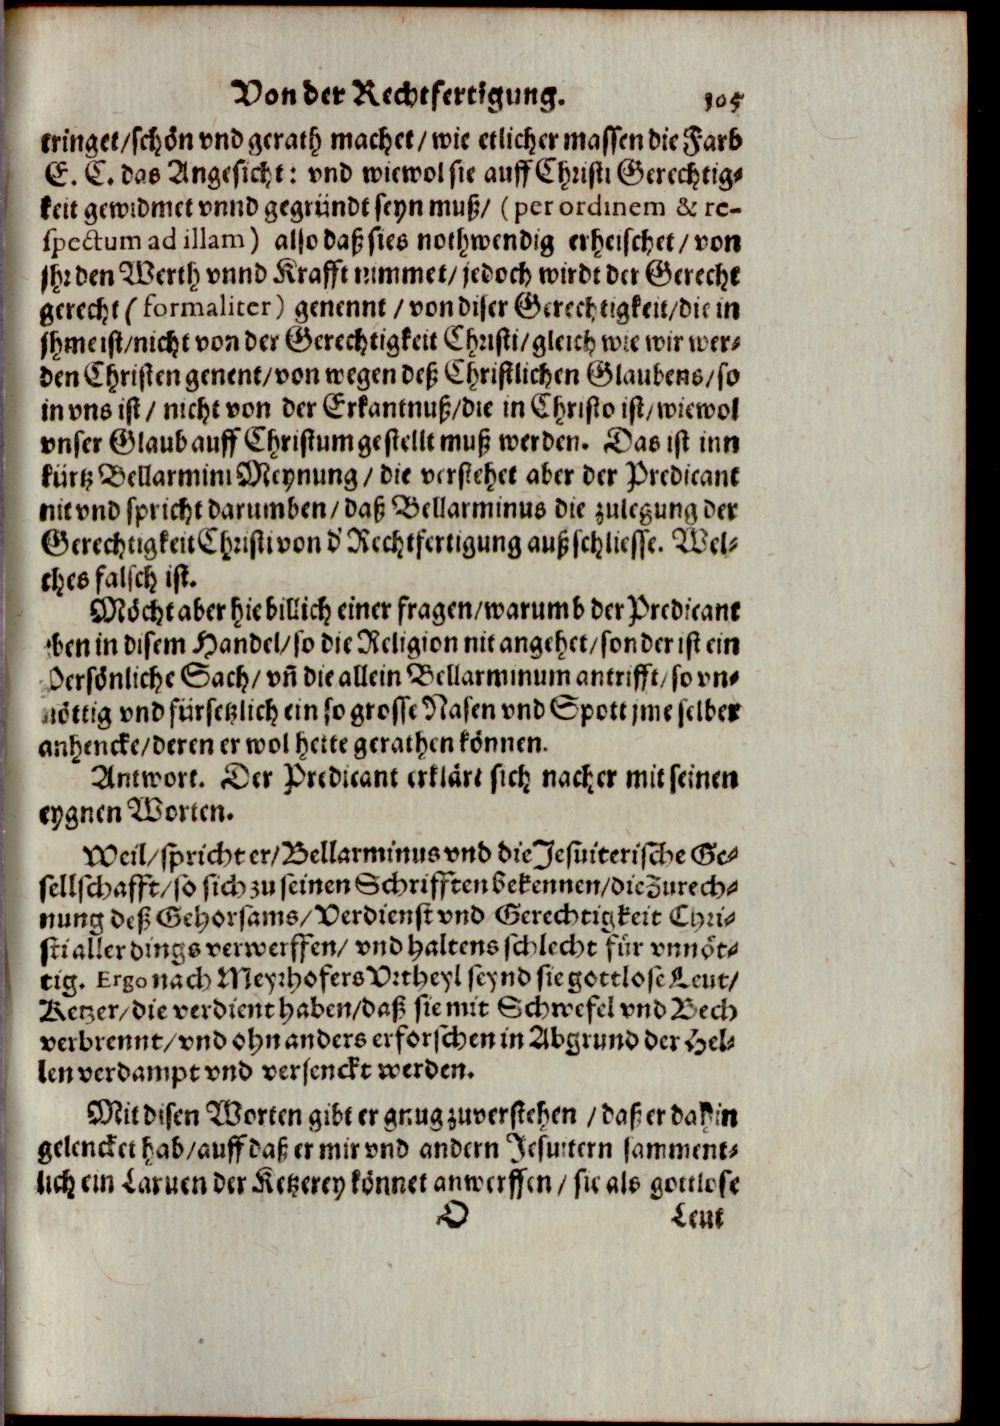 Von der Rechtfertigung. 105
tringet/schön vnd gerath machet/wie etlicher massen die Farb
E. C. das Angesicht: vnd wiewol sie auff Christi Gerechtig-
keit gewidmet vnnd gegründt seyn muß/ (per ordinem & re-
spectum ad illam) also daß sies nothwendig erheischet/von
jhr den Werth vnnd Krafft nimmet/jedoch wirdt der Gerecht
gerecht (formaliter) genennt/von diser Gerechtigkeit/die in
jhme ist/nicht von der Gerechtigkeit Christi/gleich wie wir wer-
den Christen genent/von wegen deß Christlichen Glaubens/so
in vns ist/nicht von der Erkantnuß/die in Christo ist/wiewol
vnser Glaub auff Christum gestellt muß werden. Das ist inn
kürtz Bellarmini Meynung/die verstehet aber der Predicant
nit vnd spricht darumben/daß Bellarminus die zulegung der
Gerechtigkeit Christi von d' Rechtfertigung außschliesse. Wel-
ches falsch ist.
Möcht aber hie billich einer fragen/warumb der Predicant
eben in disem Handel/so die Religion nit angehet/sonder ist ein
Persönliche Sach/vñ die allein Bellarminum antrifft/so vn-
nöttig vnd fürsetzlich ein so grosse Nasen vnd Spott jme selber
anhencke/deren er wol hette gerathen können.
Antwort. Der Predicant erklärt sich nacher mit seinen
eygnen Worten.
Weil/spricht er/Bellarminus vnd die Jesuiterische Ge-
sellschafft/so sich zu seinen Schrifften bekennen/die Zurech-
nung deß Gehorsams/Verdienst vnd Gerechtigkeit Chri-
sti aller dings verwerffen/vnd haltens schlecht für vnnöt-
tig. Ergo nach Meyrhofers Vrtheyl seynd sie gottlose Leut/
Ketzer/die verdient haben/daß sie mit Schwefel vnd Bech
verbrennt/vnd ohn anders erforschen in Abgrund der Hel-
len verdampt vnd versenckt werden.
Mit disen Worten gibt er gnug zuverstehen/daß er dahin
gelencket hab/auff daß er mir vnd andern Jesuitern samment-
lich ein Laruen der Ketzerey könnet anwerffen/sie als gottlose
O Leut